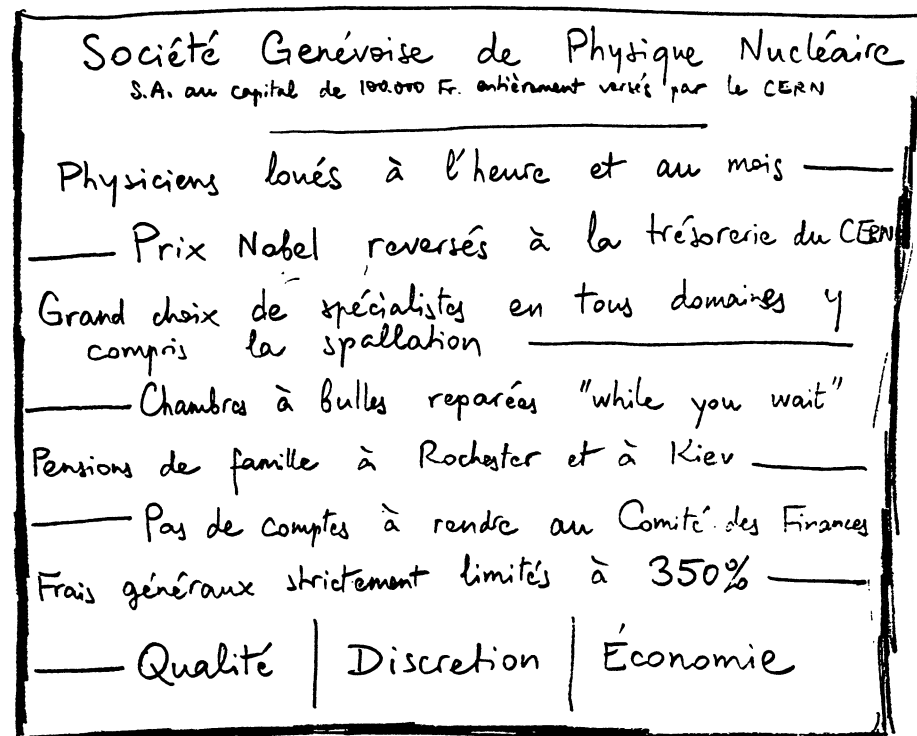 Société Genévoise de Physique Nucléaire
S.A. au capital de 100.000 Fr. entièrement versés par le CERN
Physiciens loués à l'heure et au mois
Prix Nobel reversés à la trésorerie du CERN
Grand choix de spécialistes en tous domaines y
compris la spallation
Chambres à bulles reparées "while you wait"
Pensions de famille à Rochester et à Kiev
Pas de comptes à rendre au Comité des Finances
Frais généraux strictement limités à 350%
Qualité | Discretion | Économie